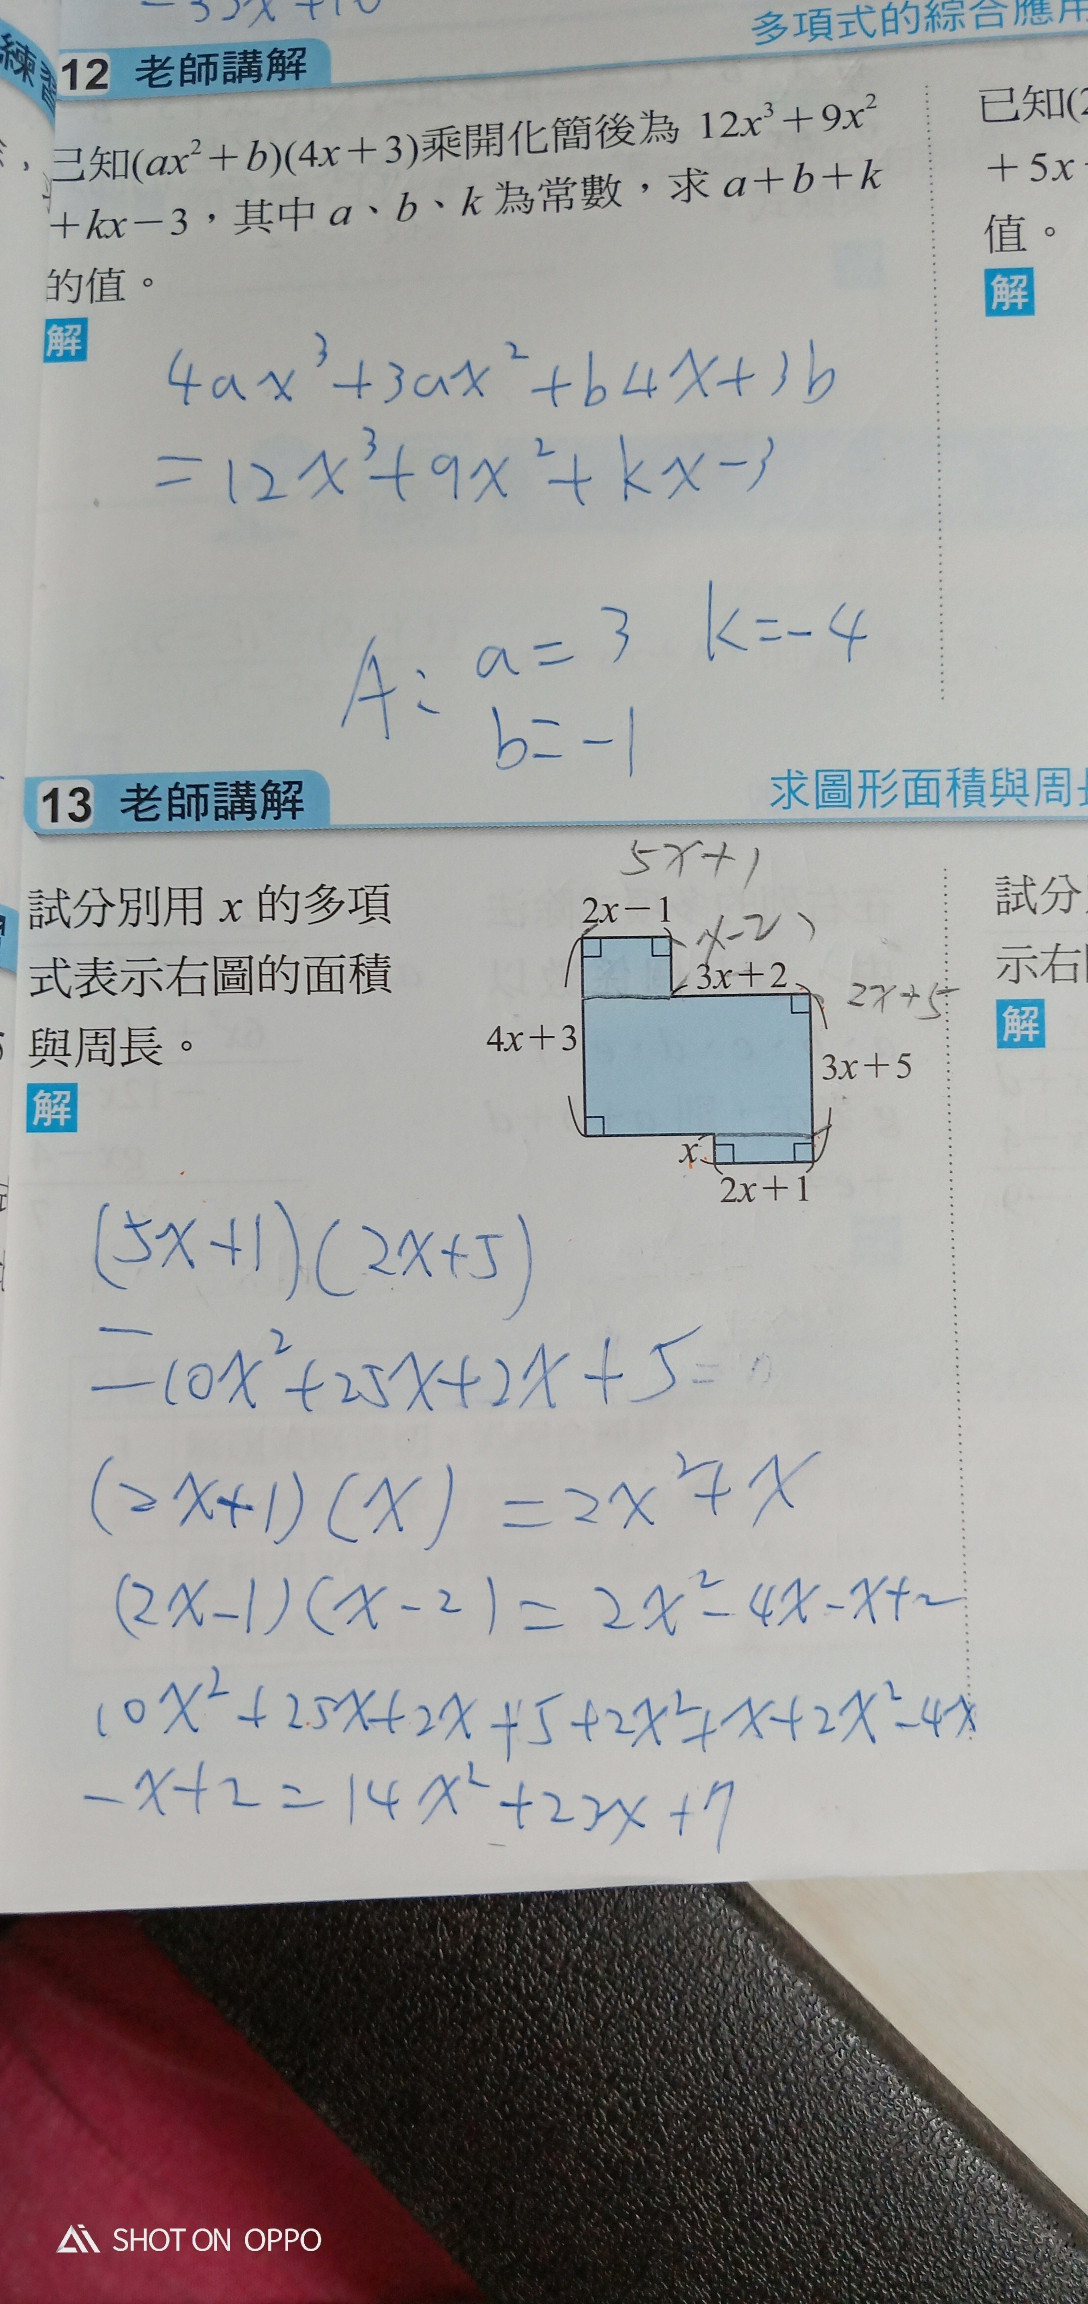 多項式的綜合應用
練習
12 老師講解
已知(ax²+b)(4x+3)乘開化簡後為 12x³+9x²
+kx-3，其中 a、b、k 為常數，求 a+b+k
的值。
解
4ax³+3ax²+b4x+3b
=12x³+9x²+kx-3
A: a=3 k=-4
b=-1
已知(2
+5x
值。
解
13 老師講解
求圖形面積與周長
試分別用 x 的多項
式表示右圖的面積
與周長。
解
5x+1
2x-1
x-2
3x+2
2x+5
4x+3
3x+5
x
2x+1
(5x+1)(2x+5)
=10x²+25x+2x+5=
(2x+1)(x)=2x²+x
(2x-1)(x-2)=2x²-4x-x+2
10x²+25x+2x+5+2x²+x+2x²-4x
-x+2=14x²+23x+7
試分
示右
解
SHOT ON OPPO